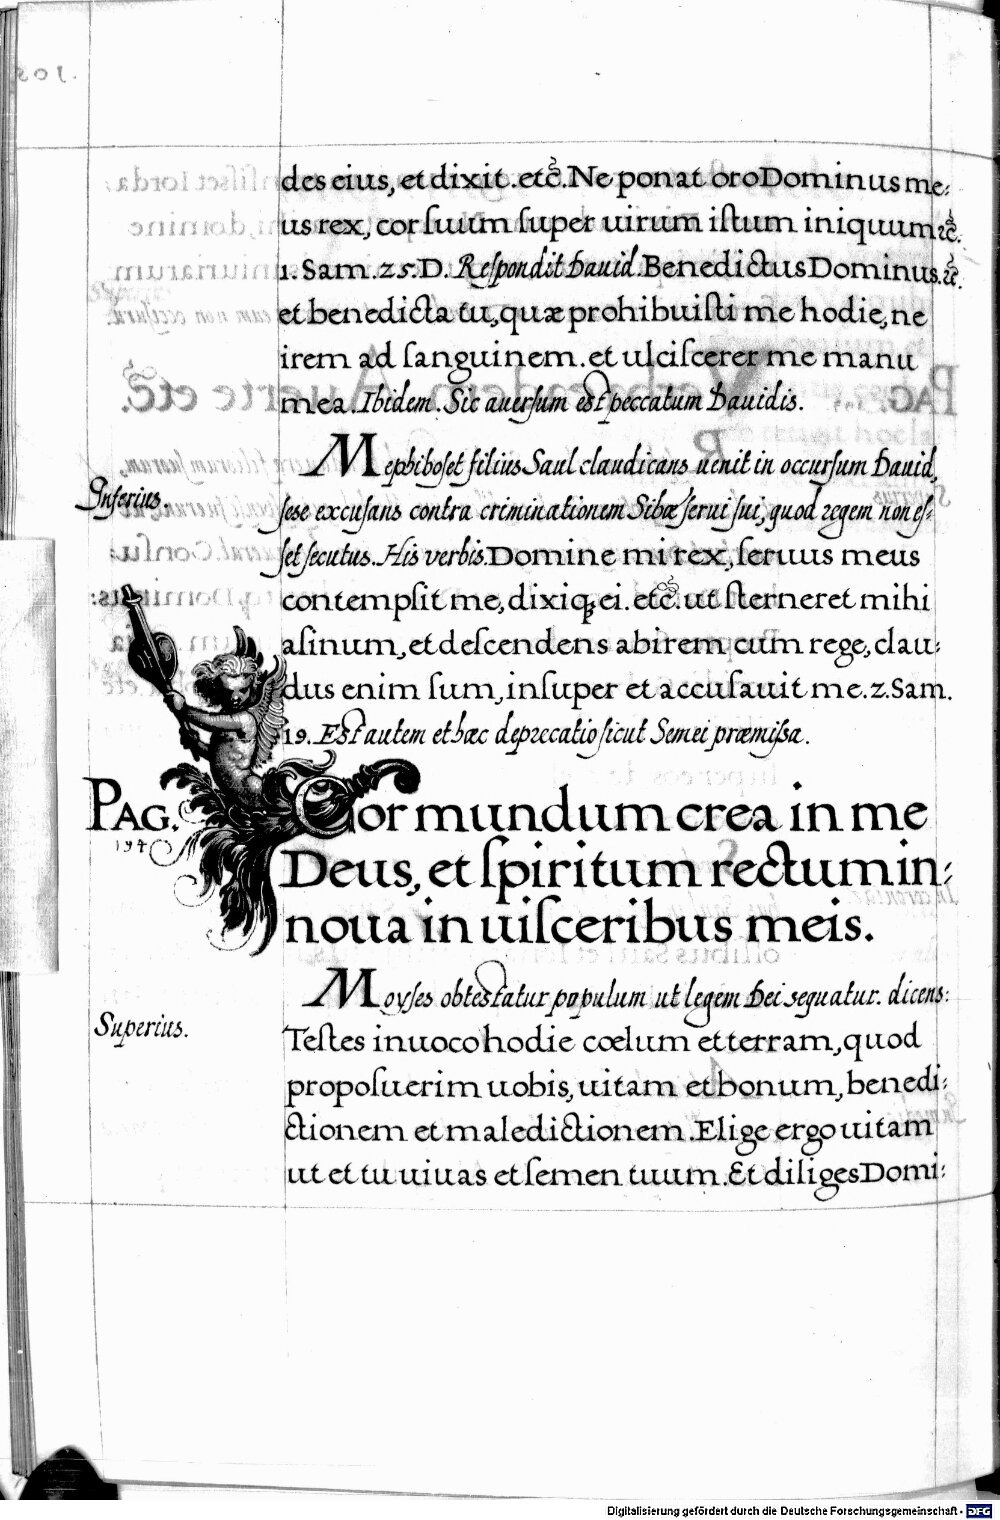 des eius, et dixit. etc. Ne ponat oro Dominus me-
us rex, cor suum super uirum istum iniquum etc.
1. Sam. 25. D. Respondit Dauid. Benedictus Dominus. etc.
et benedicta tu, quæ prohibuisti me hodie, ne
irem ad sanguinem. et ulciscerer me manu
mea. Ibidem. Sic auersum est peccatum Dauidis.
Mephiboset filius Saul claudicans uenit in occursum Dauid,
Inferius.
sese excusans contra criminationem Sibæ serui sui, quod regem non es-
set secutus. His verbis. Domine mi rex, seruus meus
contempsit me, dixiq; ei. etc. ut sterneret mihi
asinum, et descendens abirem cum rege, clau-
dus enim sum, insuper et accusauit me. 2. Sam.
19. Est autem et hæc deprecatio sicut Semei præmissa.
PAG. Cor mundum crea in me
194
Deus, et spiritum rectum in-
noua in uisceribus meis.
Moyses obtestatur populum ut legem Dei sequatur. dicens:
Superius.
Testes inuoco hodie cœlum et terram, quod
proposuerim uobis, uitam et bonum, benedi-
ctionem et maledictionem. Elige ergo uitam
ut et tu uiuas et semen tuum. Et diliges Domi-
Digitalisierung gefördert durch die Deutsche Forschungsgemeinschaft - DFG